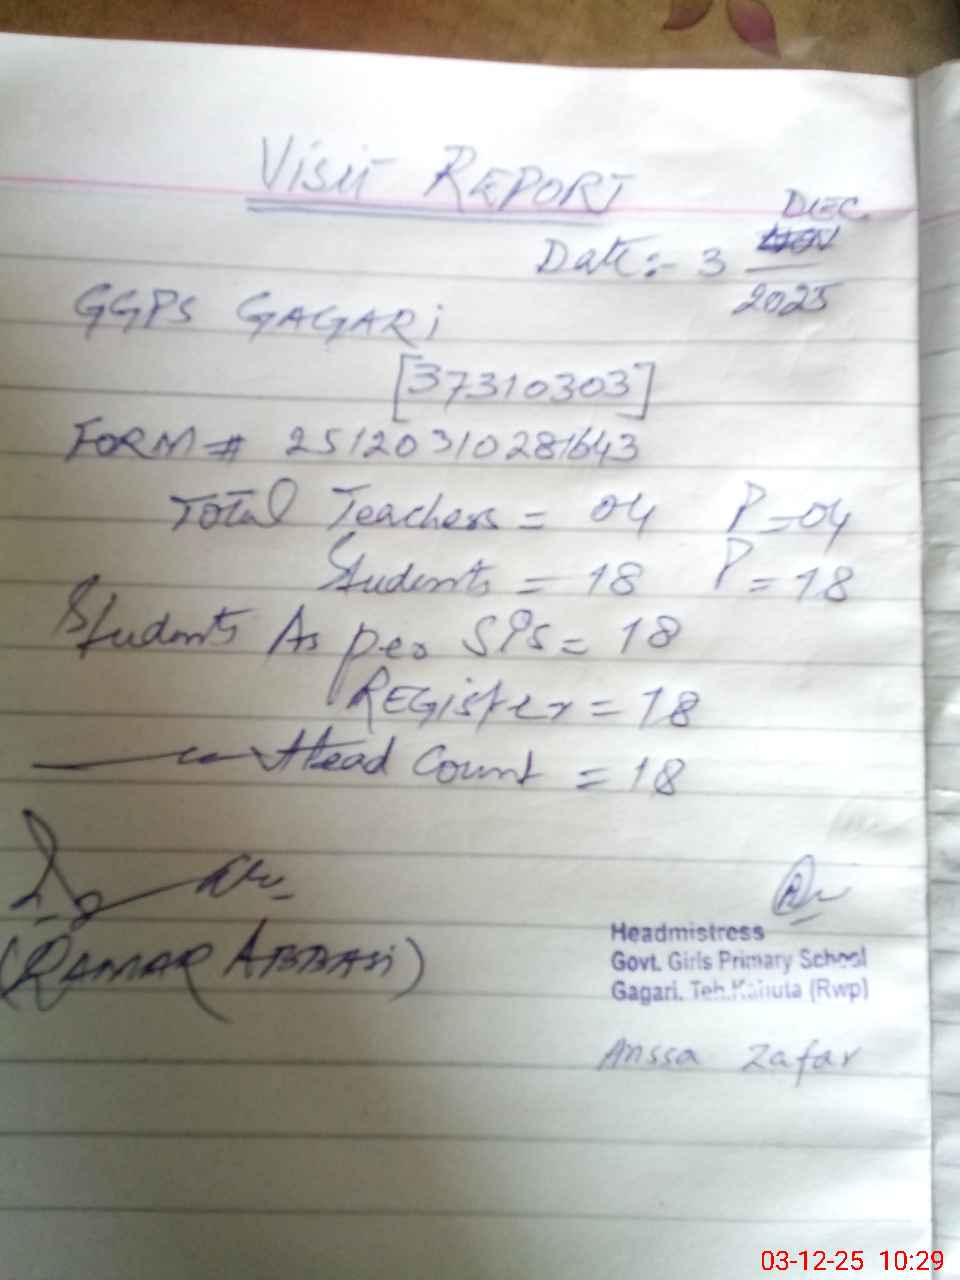 Visit REPORT
DEC.
Date:- 3 NOV
2025
GGPS GAGARi
[37310303]
FORM # 25120310281643
Total Teachers = 04 P=04
Students = 18 P=18
Students As per SPS = 18
REGister = 18
Head Count = 18
(QAMAR ABBASi)
Headmistress
Govt. Girls Primary School
Gagari. Teh.Kahuta (Rwp)
Anssa Zafar
03-12-25 10:29